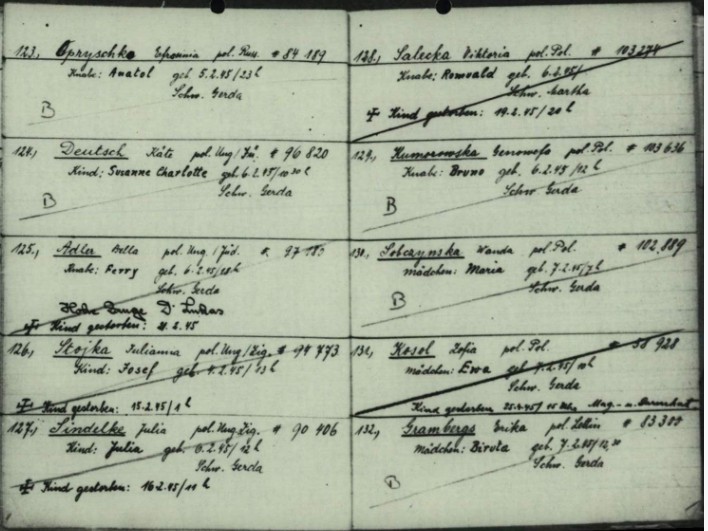 123., Opryschko Efrosinia pol. Russ. # 84 189
Knabe: Anatol geb. 5.2.45/23 h
Schw. Gerda
B
124., Deutsch Käte pol. Ung/Jü. # 96 820
Kind: Susanne Charlotte geb. 6.2.45/10 30 h
Schw. Gerda
B
125., Adler Bella pol. Ung./Jüd.
Knabe: Ferry geb. 6.2.45/
Schw. Gerda
Dr Lukas
Kind gestorben: 21.2.45
126., Stojka Julianna pol. Ung/Zig. # 94 773
Kind: Josef geb. 4.2.45/13 h
Kind gestorben: 15.2.45/1 h
127., Sindelke Julia pol. Ung Zig. # 90 406
Kind: Julia geb. 6.2.45/12 h
Schw. Gerda
Kind gestorben: 16.2.45/11 h
128., Salecka Viktoria pol. Pol. # 103 274
Knabe: Romvald geb. 6.2.45/
Schw. Martha
Kind gestorben: 19.2.45/20 h
129., Humorowska Genowefa pol. Pol. # 103 636
Knabe: Bruno geb. 6.2.45/12 h
Schw. Gerda
B
130., Sobczynska Wanda pol. Pol. # 102,889
Mädchen: Maria geb. 7.2.45/7 h
Schw. Gerda
B
131., Kosol Zofia pol. Pol. # 928
Mädchen: Ewa geb. 7.2.45/10 h
Schw. Gerda
Kind gestorben Mag.- u.
132., Grambergs Erika pol. Lettin # 83 309
Mädchen: Biruta geb. 7.2.45/12,30
Schw. Gerda
B